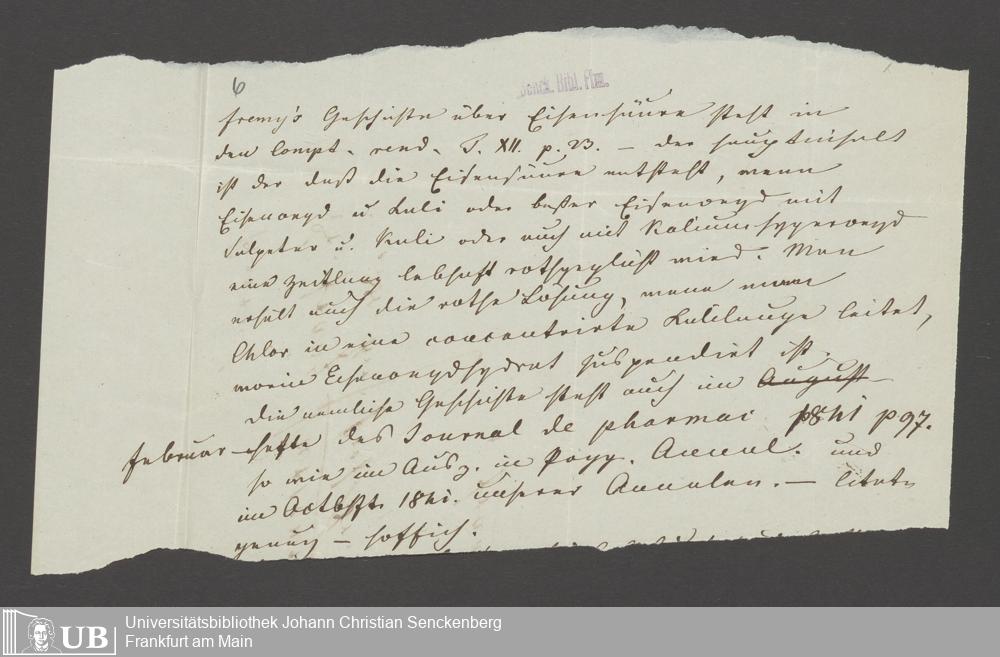 6
Senck. Bibl. Ffm.
Fremy's Geschichte über Eisensäure steht in
den Compt. rend. T. XII. p. 23. — der Hauptinhalt
ist der daß die Eisensäure entsteht, wenn
Eisenoxyd u Kali oder beßer Eisenoxyd mit
Salpeter u. Kali oder auch mit Kaliumhyperoxyd
eine Zeitlang lebhaft rothgeglüht wird. Man
erhält auch die rothe Lösung, wenn man
Chlor in eine concentrirte Kalilauge leitet,
worin Eisenoxydhydrat suspendirt ist.
Die nemliche Geschichte steht auch im August
Februar-hefte des Journal de pharmac 1841 p 97.
so wie im Ausz. in Pogg. Annal. und
im Octbhft. 1841. unserer Annalen. —
genug — hoffich.
Universitätsbibliothek Johann Christian Senckenberg
Frankfurt am Main
UB